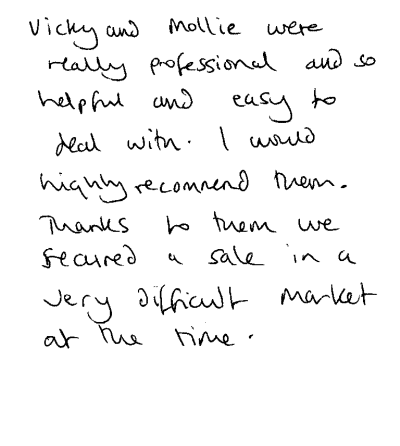 Vicky and Mollie were
really professional and so
helpful and easy to
deal with. I would
highly recommend them.
Thanks to them we
secured a sale in a
very difficult market
at the time.